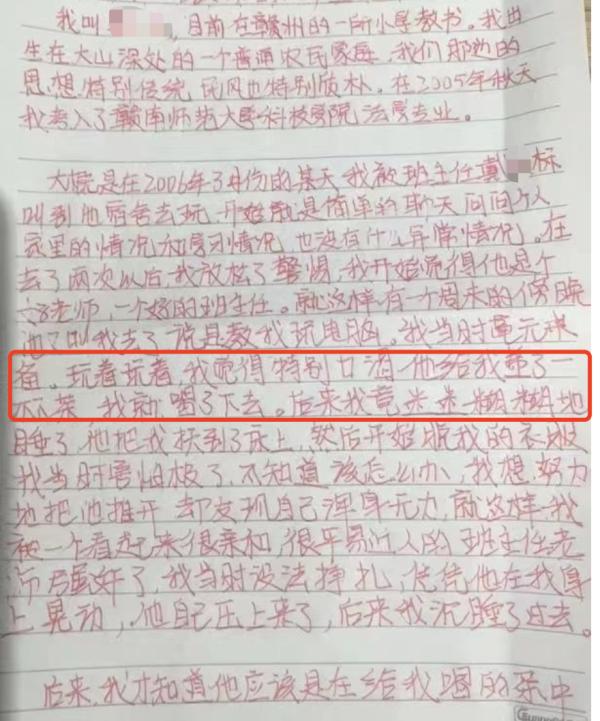 我叫 ，目前在赣州的一所小学教书。我出
生在大山深处的一个普通农民家庭，我们那边的
思想特别传统，民风也特别质朴。在2005年秋天
我考入了赣南师范大学科技学院法学专业。
大概是在2006年3月份的某天，我被班主任 标
叫到他宿舍去玩，开始就是简单的聊天，问问个人
家里的情况和学习情况，也没有什么异常情况。在
去了两次以后，我放松了警惕，我开始觉得他是个
好老师，一个好的班主任。就这样有一个周末的傍晚
他 叫我去了，说是教我玩电脑。我当时毫无
备。玩着玩着，我觉得特别口渴，他给我 了一
杯茶，我就喝了下去。后来我竟迷迷糊糊地
睡了，他把我扶到了床上，然后开始脱我的衣服
我当时害怕极了，不知道该怎么办，我想努力
地把他推开，却发现自己浑身无力，就这样，我
被一个看起来很亲和，很平易近人的班主任老
师 奸了，我当时没法挣扎，凭凭他在我身
上晃动，他自己压上来了，后来我沉睡了过去。
后来，我才知道他应该是在给我喝的茶中